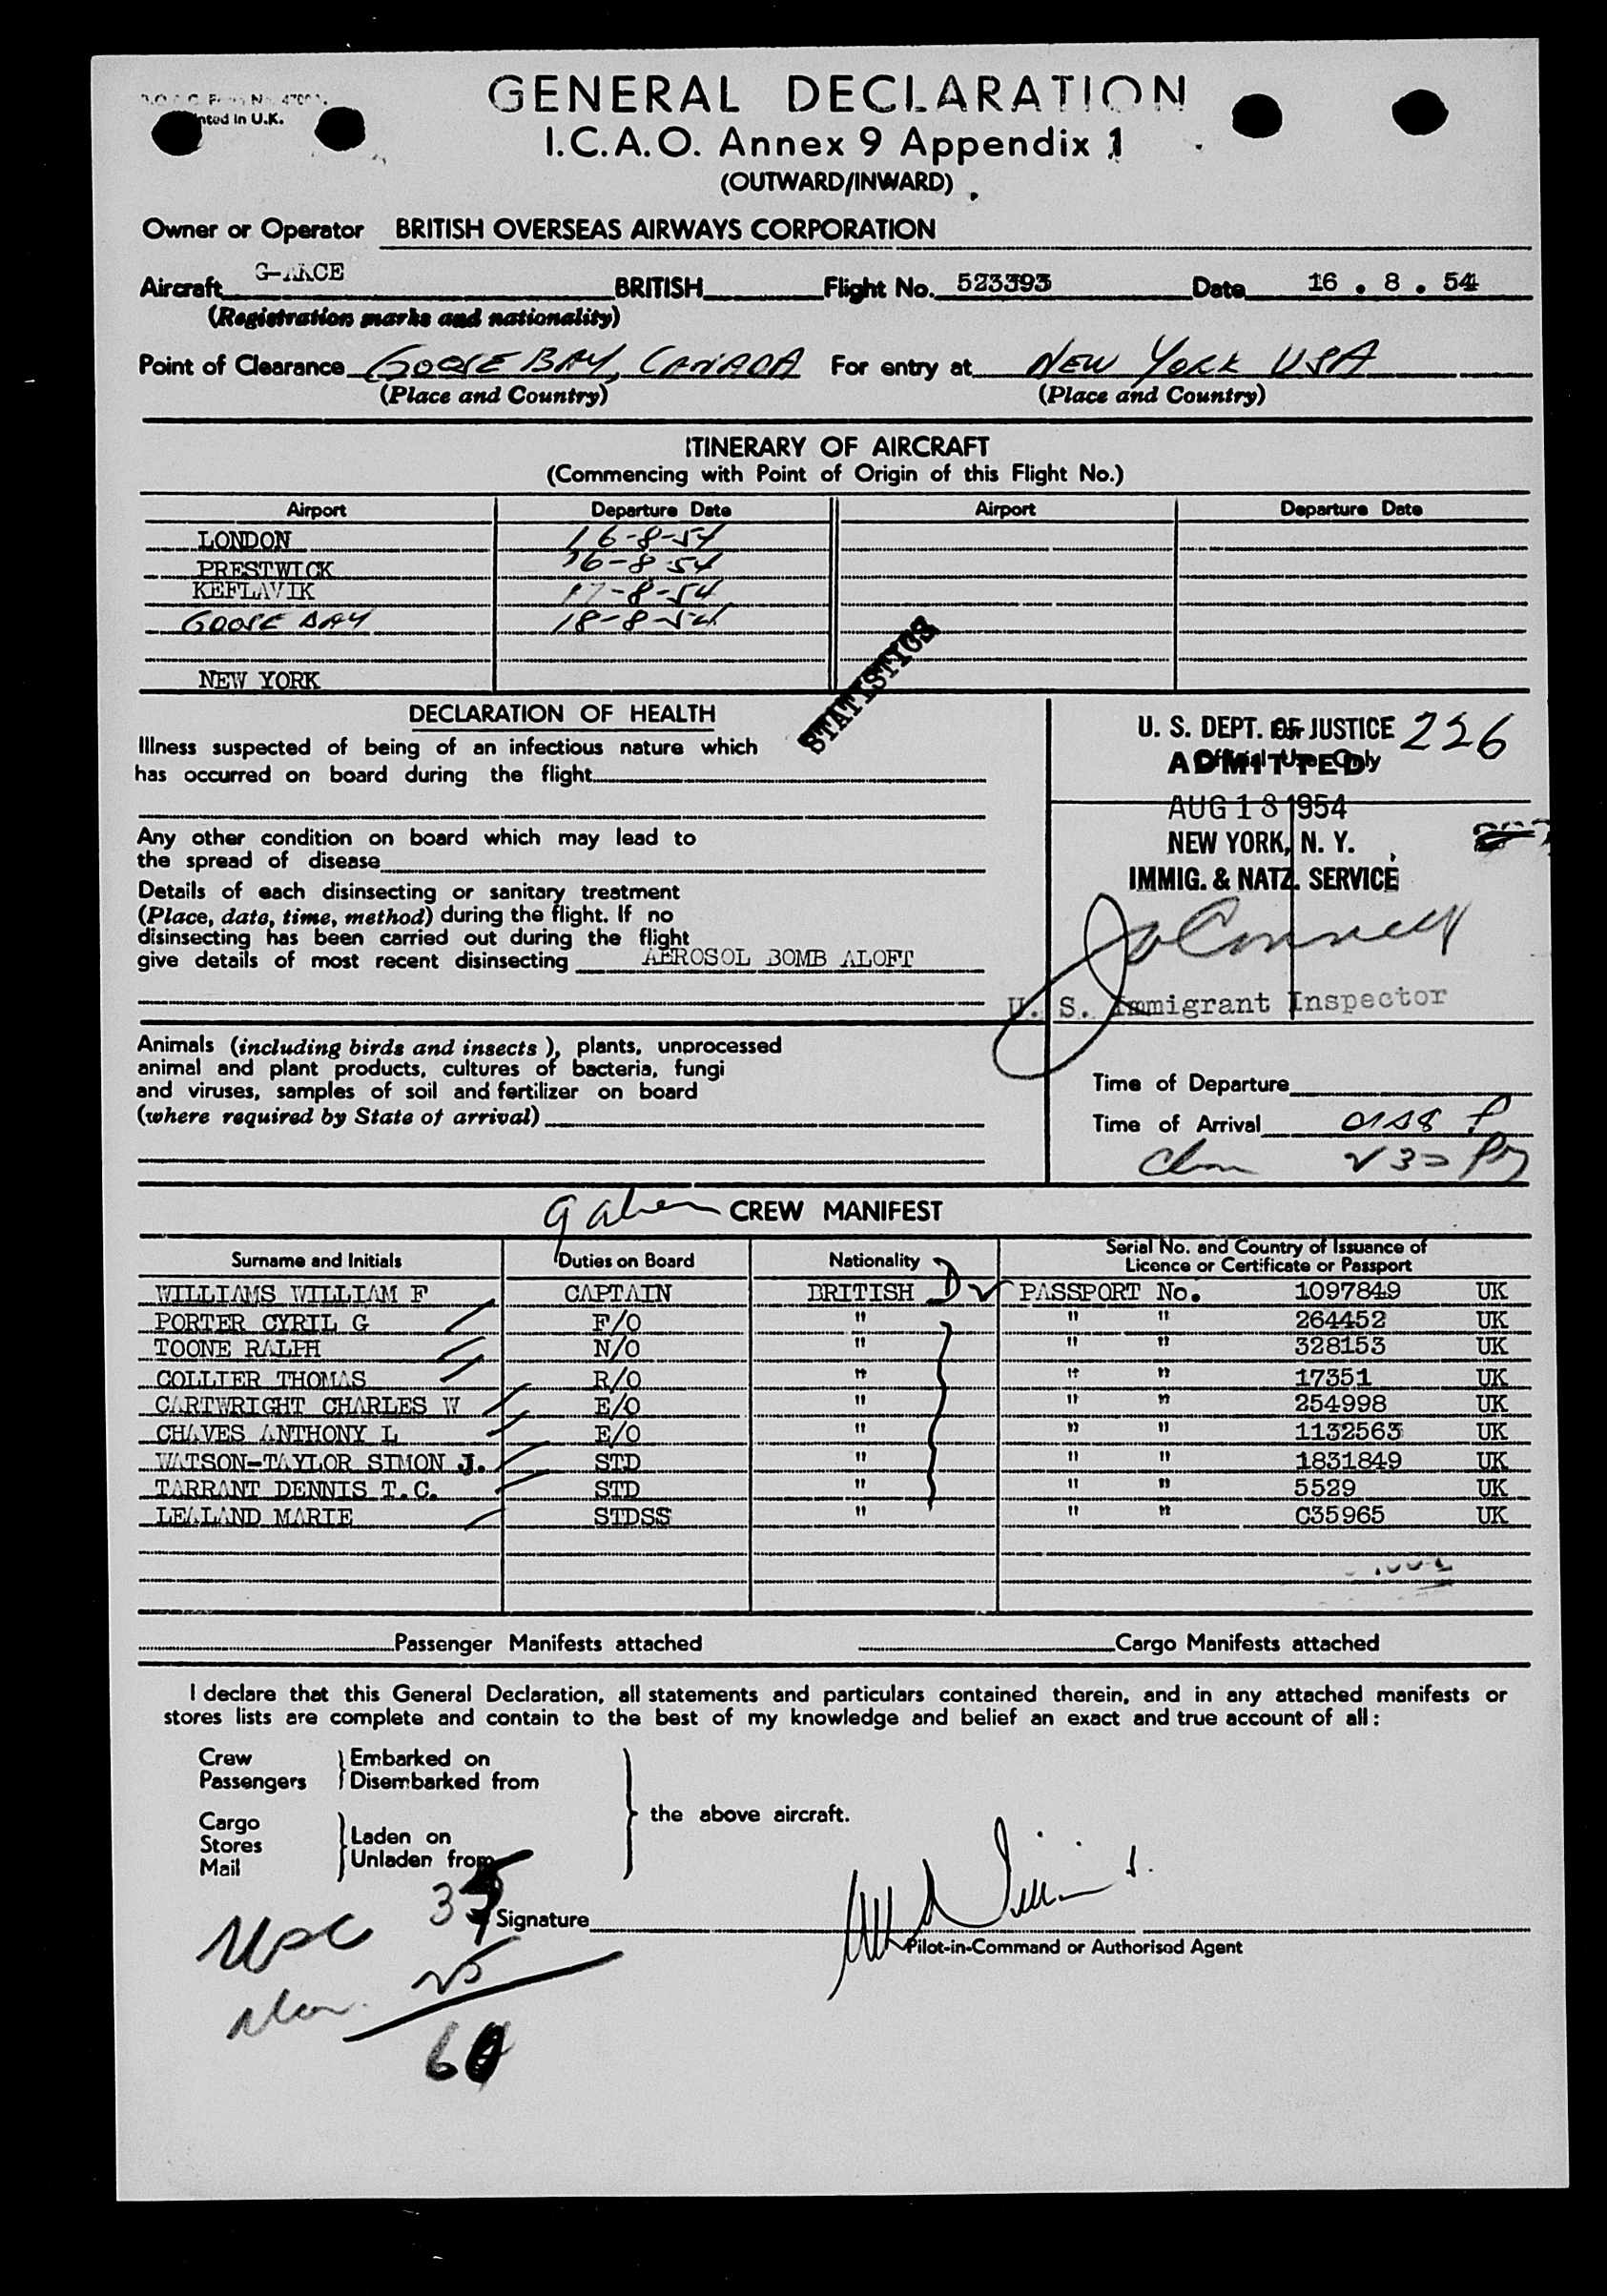 Printed in U.K.
GENERAL DECLARATION
I.C.A.O. Annex 9 Appendix 1
(OUTWARD/INWARD)
Owner or Operator BRITISH OVERSEAS AIRWAYS CORPORATION
Aircraft BRITISH Flight No. 523393 Date 16 . 8 . 54
(Registration marks and nationality)
Point of Clearance GOOSE BAY, CANADA For entry at NEW YORK USA
(Place and Country) (Place and Country)
ITINERARY OF AIRCRAFT
(Commencing with Point of Origin of this Flight No.)
Airport Departure Date Airport Departure Date
LONDON 16-8-54
PRESTWICK 16-8-54
KEFLAVIK 17-8-54
GOOSE BAY 18-8-54
NEW YORK
STATISTICS
DECLARATION OF HEALTH
Illness suspected of being of an infectious nature which
has occurred on board during the flight
Any other condition on board which may lead to
the spread of disease
Details of each disinsecting or sanitary treatment
(Place, date, time, method) during the flight. If no
disinsecting has been carried out during the flight
give details of most recent disinsecting AEROSOL BOMB ALOFT
Animals (including birds and insects), plants, unprocessed
animal and plant products, cultures of bacteria, fungi
and viruses, samples of soil and fertilizer on board
(where required by State of arrival)
U. S. DEPT. OF JUSTICE 226
ADMITTED
Official Use Only
AUG 18 1954
NEW YORK, N. Y.
IMMIG. & NATZ. SERVICE
U. S. Immigrant Inspector
Time of Departure
Time of Arrival
CREW MANIFEST
Surname and Initials Duties on Board Nationality Serial No. and Country of Issuance of Licence or Certificate or Passport
WILLIAMS WILLIAM F CAPTAIN BRITISH PASSPORT No. 1097849 UK
PORTER CYRIL G F/O " " " 264452 UK
TOONE RALPH N/O " " " 328153 UK
COLLIER THOMAS R/O " " " 17351 UK
CARTWRIGHT CHARLES W E/O " " " 254998 UK
CHAVES ANTHONY L E/O " " " 1132563 UK
WATSON-TAYLOR SIMON J. STD " " " 1831849 UK
TARRANT DENNIS T.C. STD " " " 5529 UK
LEALAND MARIE STDSS " " " C35965 UK
Passenger Manifests attached Cargo Manifests attached
I declare that this General Declaration, all statements and particulars contained therein, and in any attached manifests or
stores lists are complete and contain to the best of my knowledge and belief an exact and true account of all:
Crew Embarked on
Passengers Disembarked from
the above aircraft.
Cargo
Stores Laden on
Mail Unladen from
Signature
Pilot-in-Command or Authorised Agent